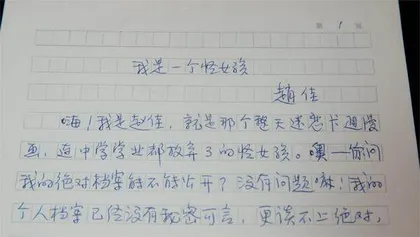 第 1 页
我是一个怪女孩
赵佳
嗨！我是赵佳，就是那个整天迷恋卡通漫
画，连中学学业都放弃了的怪女孩。噢——你问
我的绝对档案能不能公开？没有问题嘛！我的
个人档案已经没有秘密可言，更谈不上绝对，